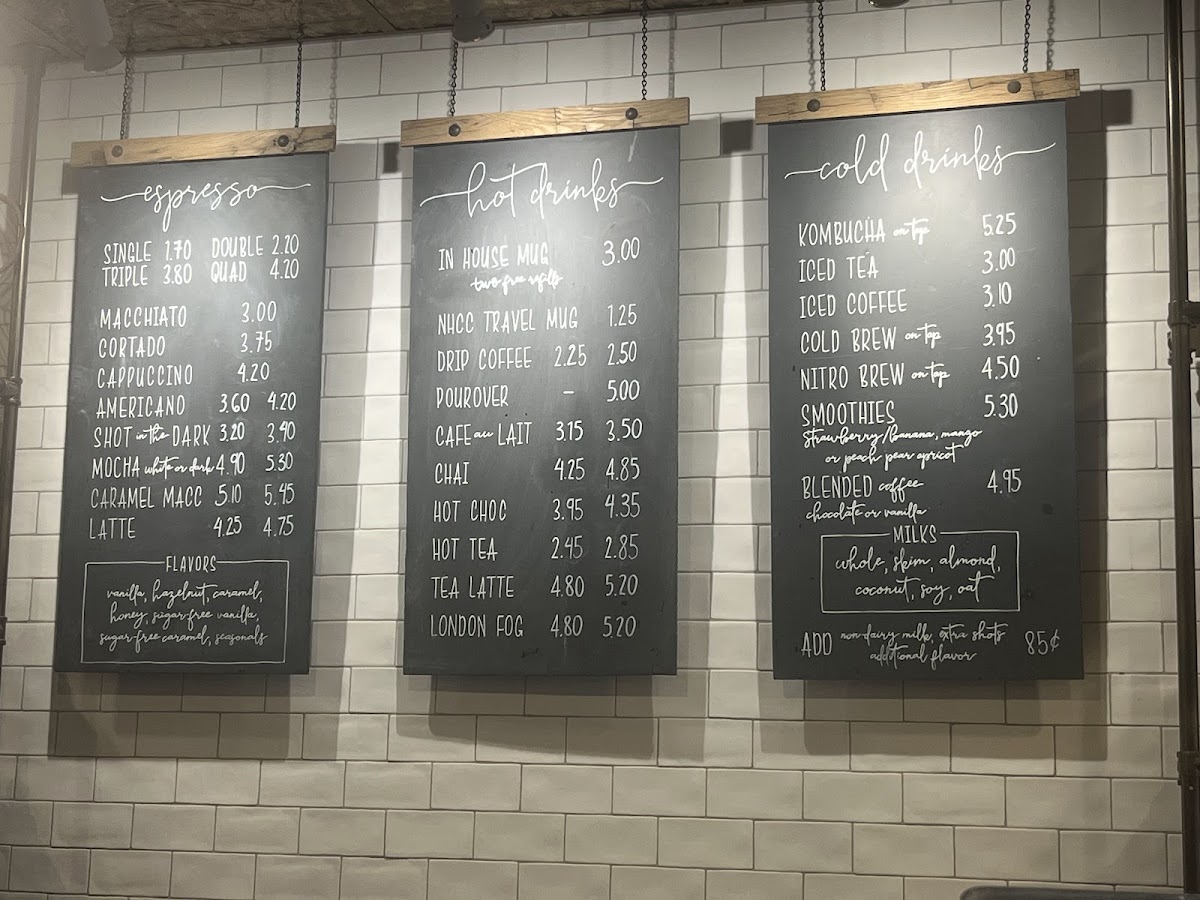 espresso
SINGLE 1.70 DOUBLE 2.20
TRIPLE 3.80 QUAD 4.20
MACCHIATO 3.00
CORTADO 3.75
CAPPUCCINO 4.20
AMERICANO 3.60 4.20
SHOT in the DARK 3.20 3.40
MOCHA white or dark 4.90 5.30
CARAMEL MACC 5.10 5.45
LATTE 4.25 4.75
FLAVORS
vanilla, hazelnut, caramel,
honey, sugar-free vanilla,
sugar-free caramel, seasonals
hot drinks
IN HOUSE MUG 3.00
two free refills
NHCC TRAVEL MUG 1.25
DRIP COFFEE 2.25 2.50
POUROVER – 5.00
CAFE au LAIT 3.15 3.50
CHAI 4.25 4.85
HOT CHOC 3.95 4.35
HOT TEA 2.45 2.85
TEA LATTE 4.80 5.20
LONDON FOG 4.80 5.20
cold drinks
KOMBUCHA on tap 5.25
ICED TEA 3.00
ICED COFFEE 3.10
COLD BREW on tap 3.95
NITRO BREW on tap 4.50
SMOOTHIES 5.30
strawberry/banana, mango
or peach pear apricot
BLENDED coffee 4.95
chocolate or vanilla
MILKS
whole, skim, almond,
coconut, soy, oat
ADD non-dairy milk, extra shots 85¢
additional flavor